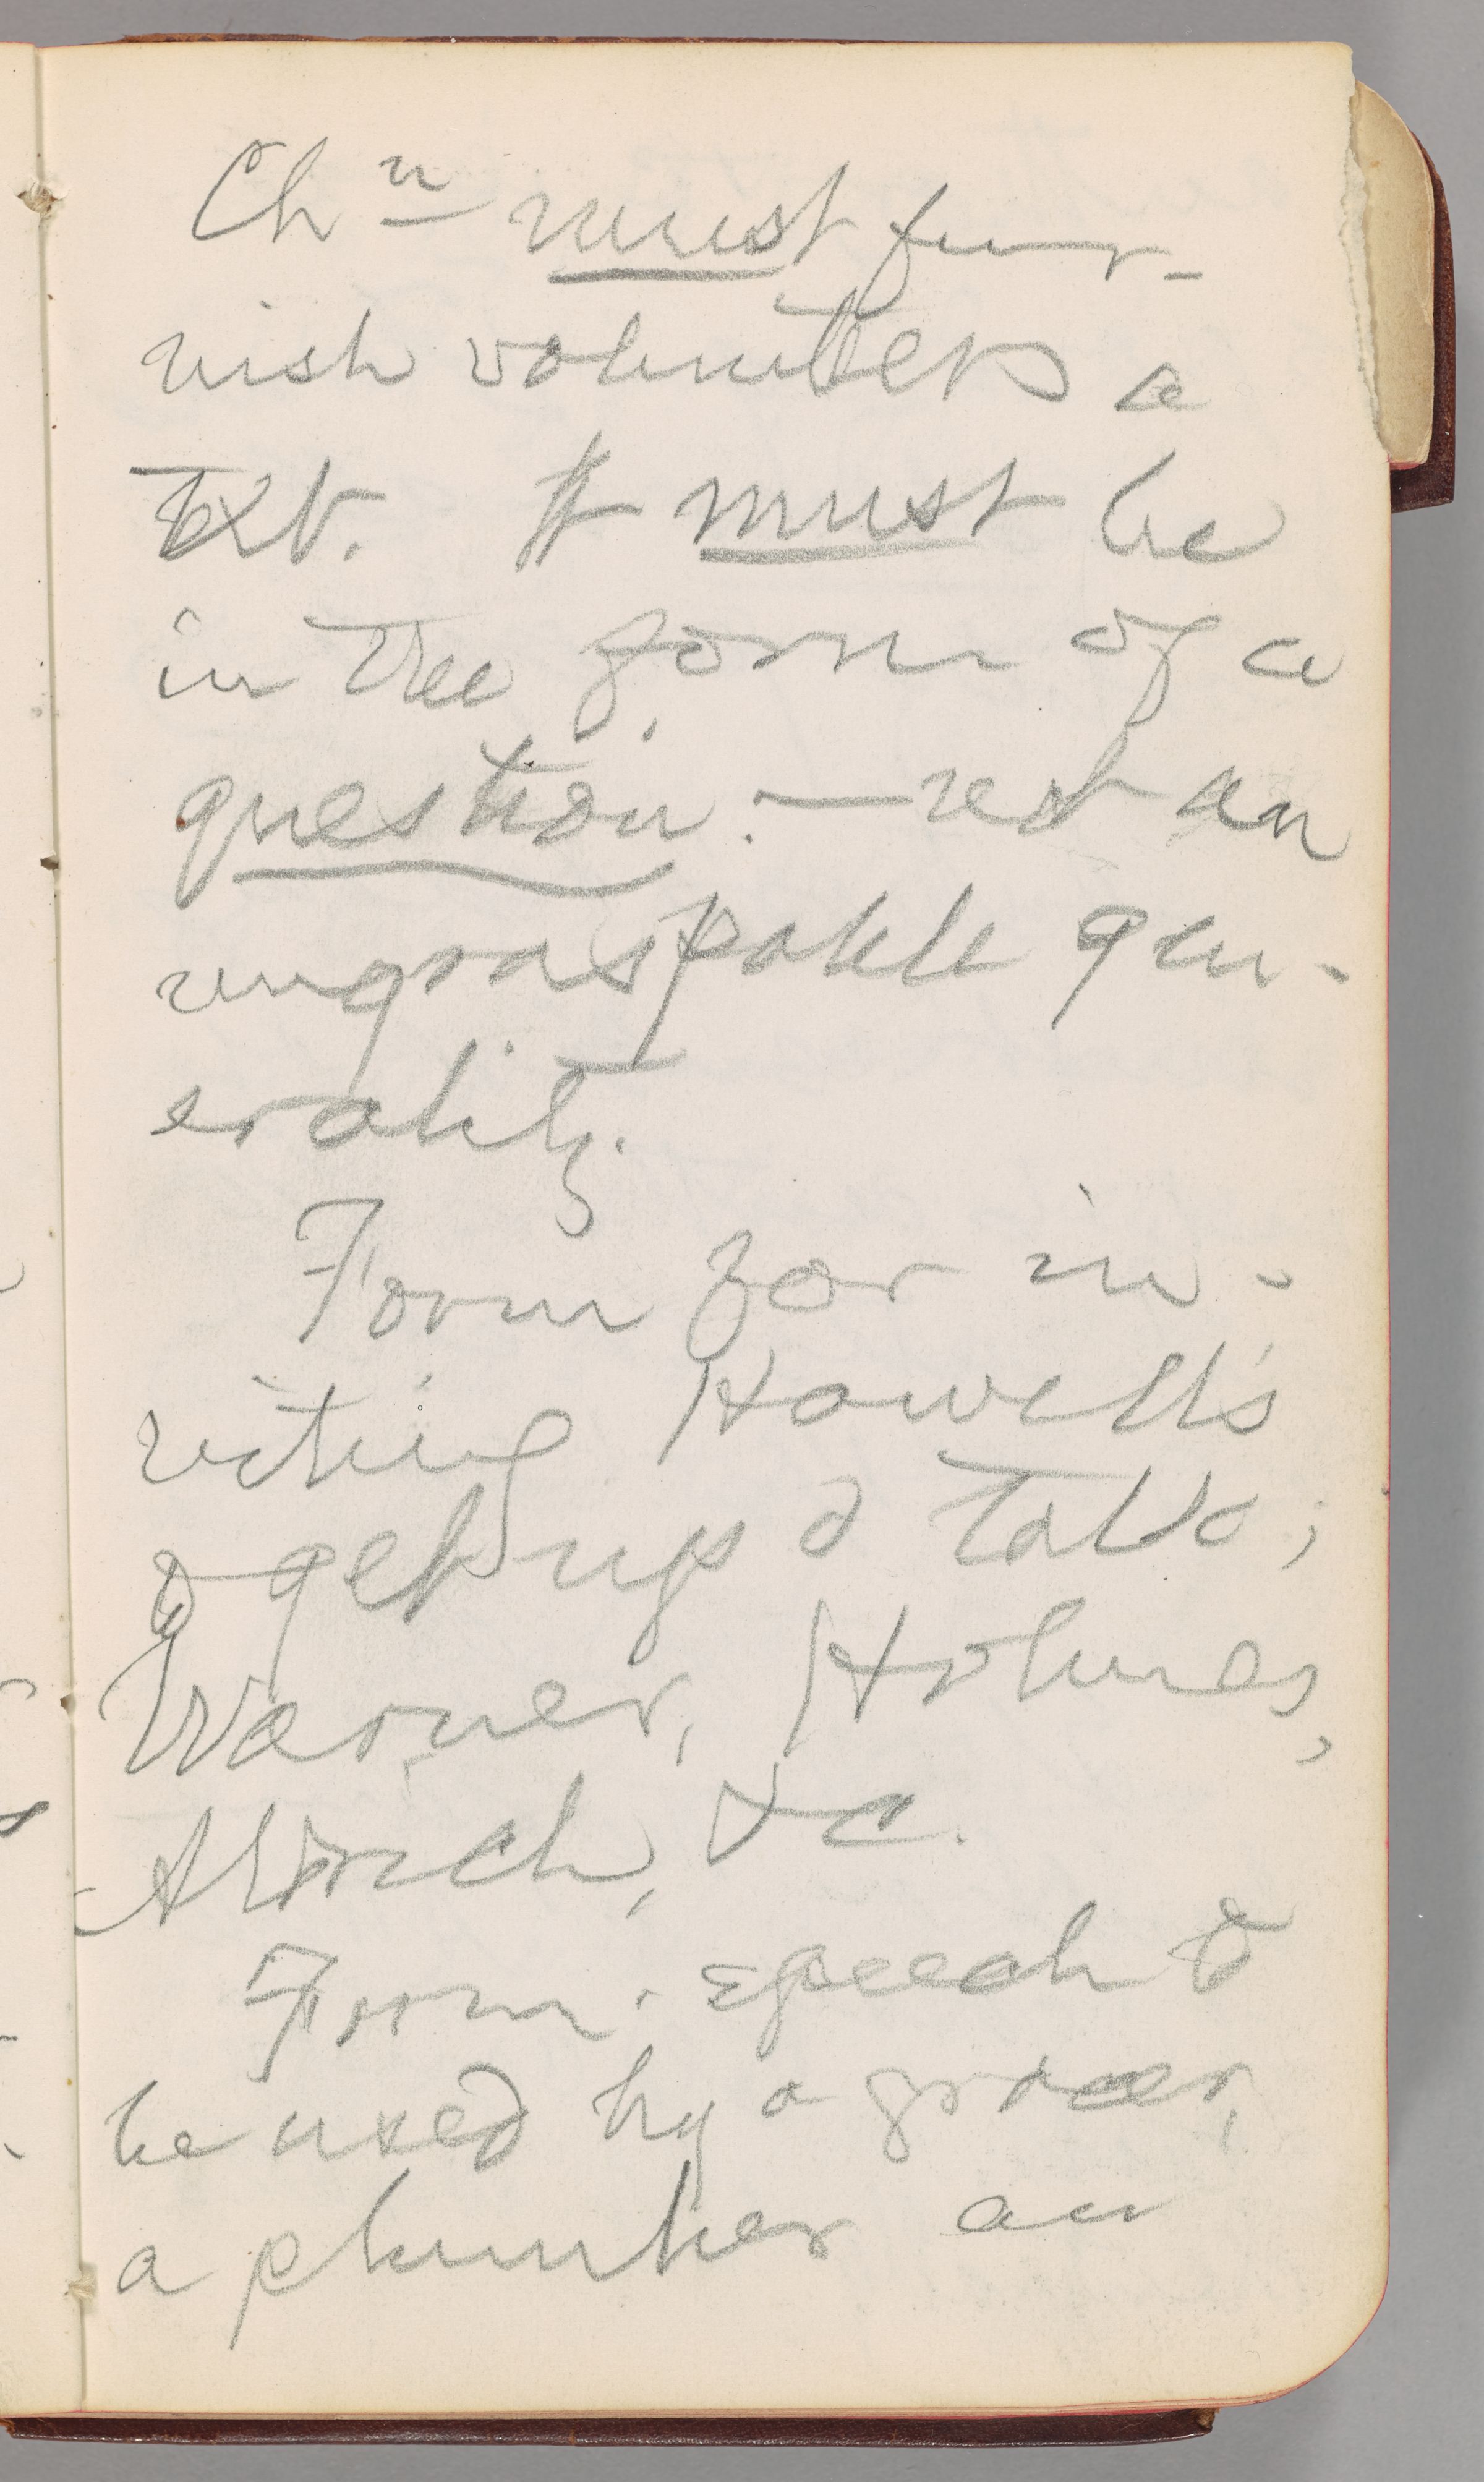 Chn must fur-
nish volunteers a
text. It must be
in the form of a
question: — not an
ungraspable gen-
erality.
Form for in-
viting Howells
to get up & talk;
Warner, Holmes,
Aldrich, &c.
Form. speech to
be used by a grocer,
a plumber an